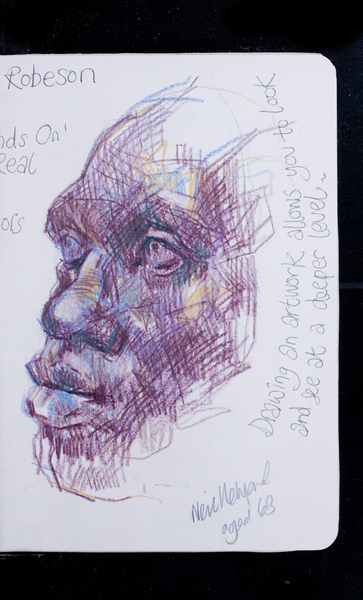 Robeson
nds On'
Real
ols
Drawing an artwork allows you to look
and see at a deeper level~
Neil
aged 63